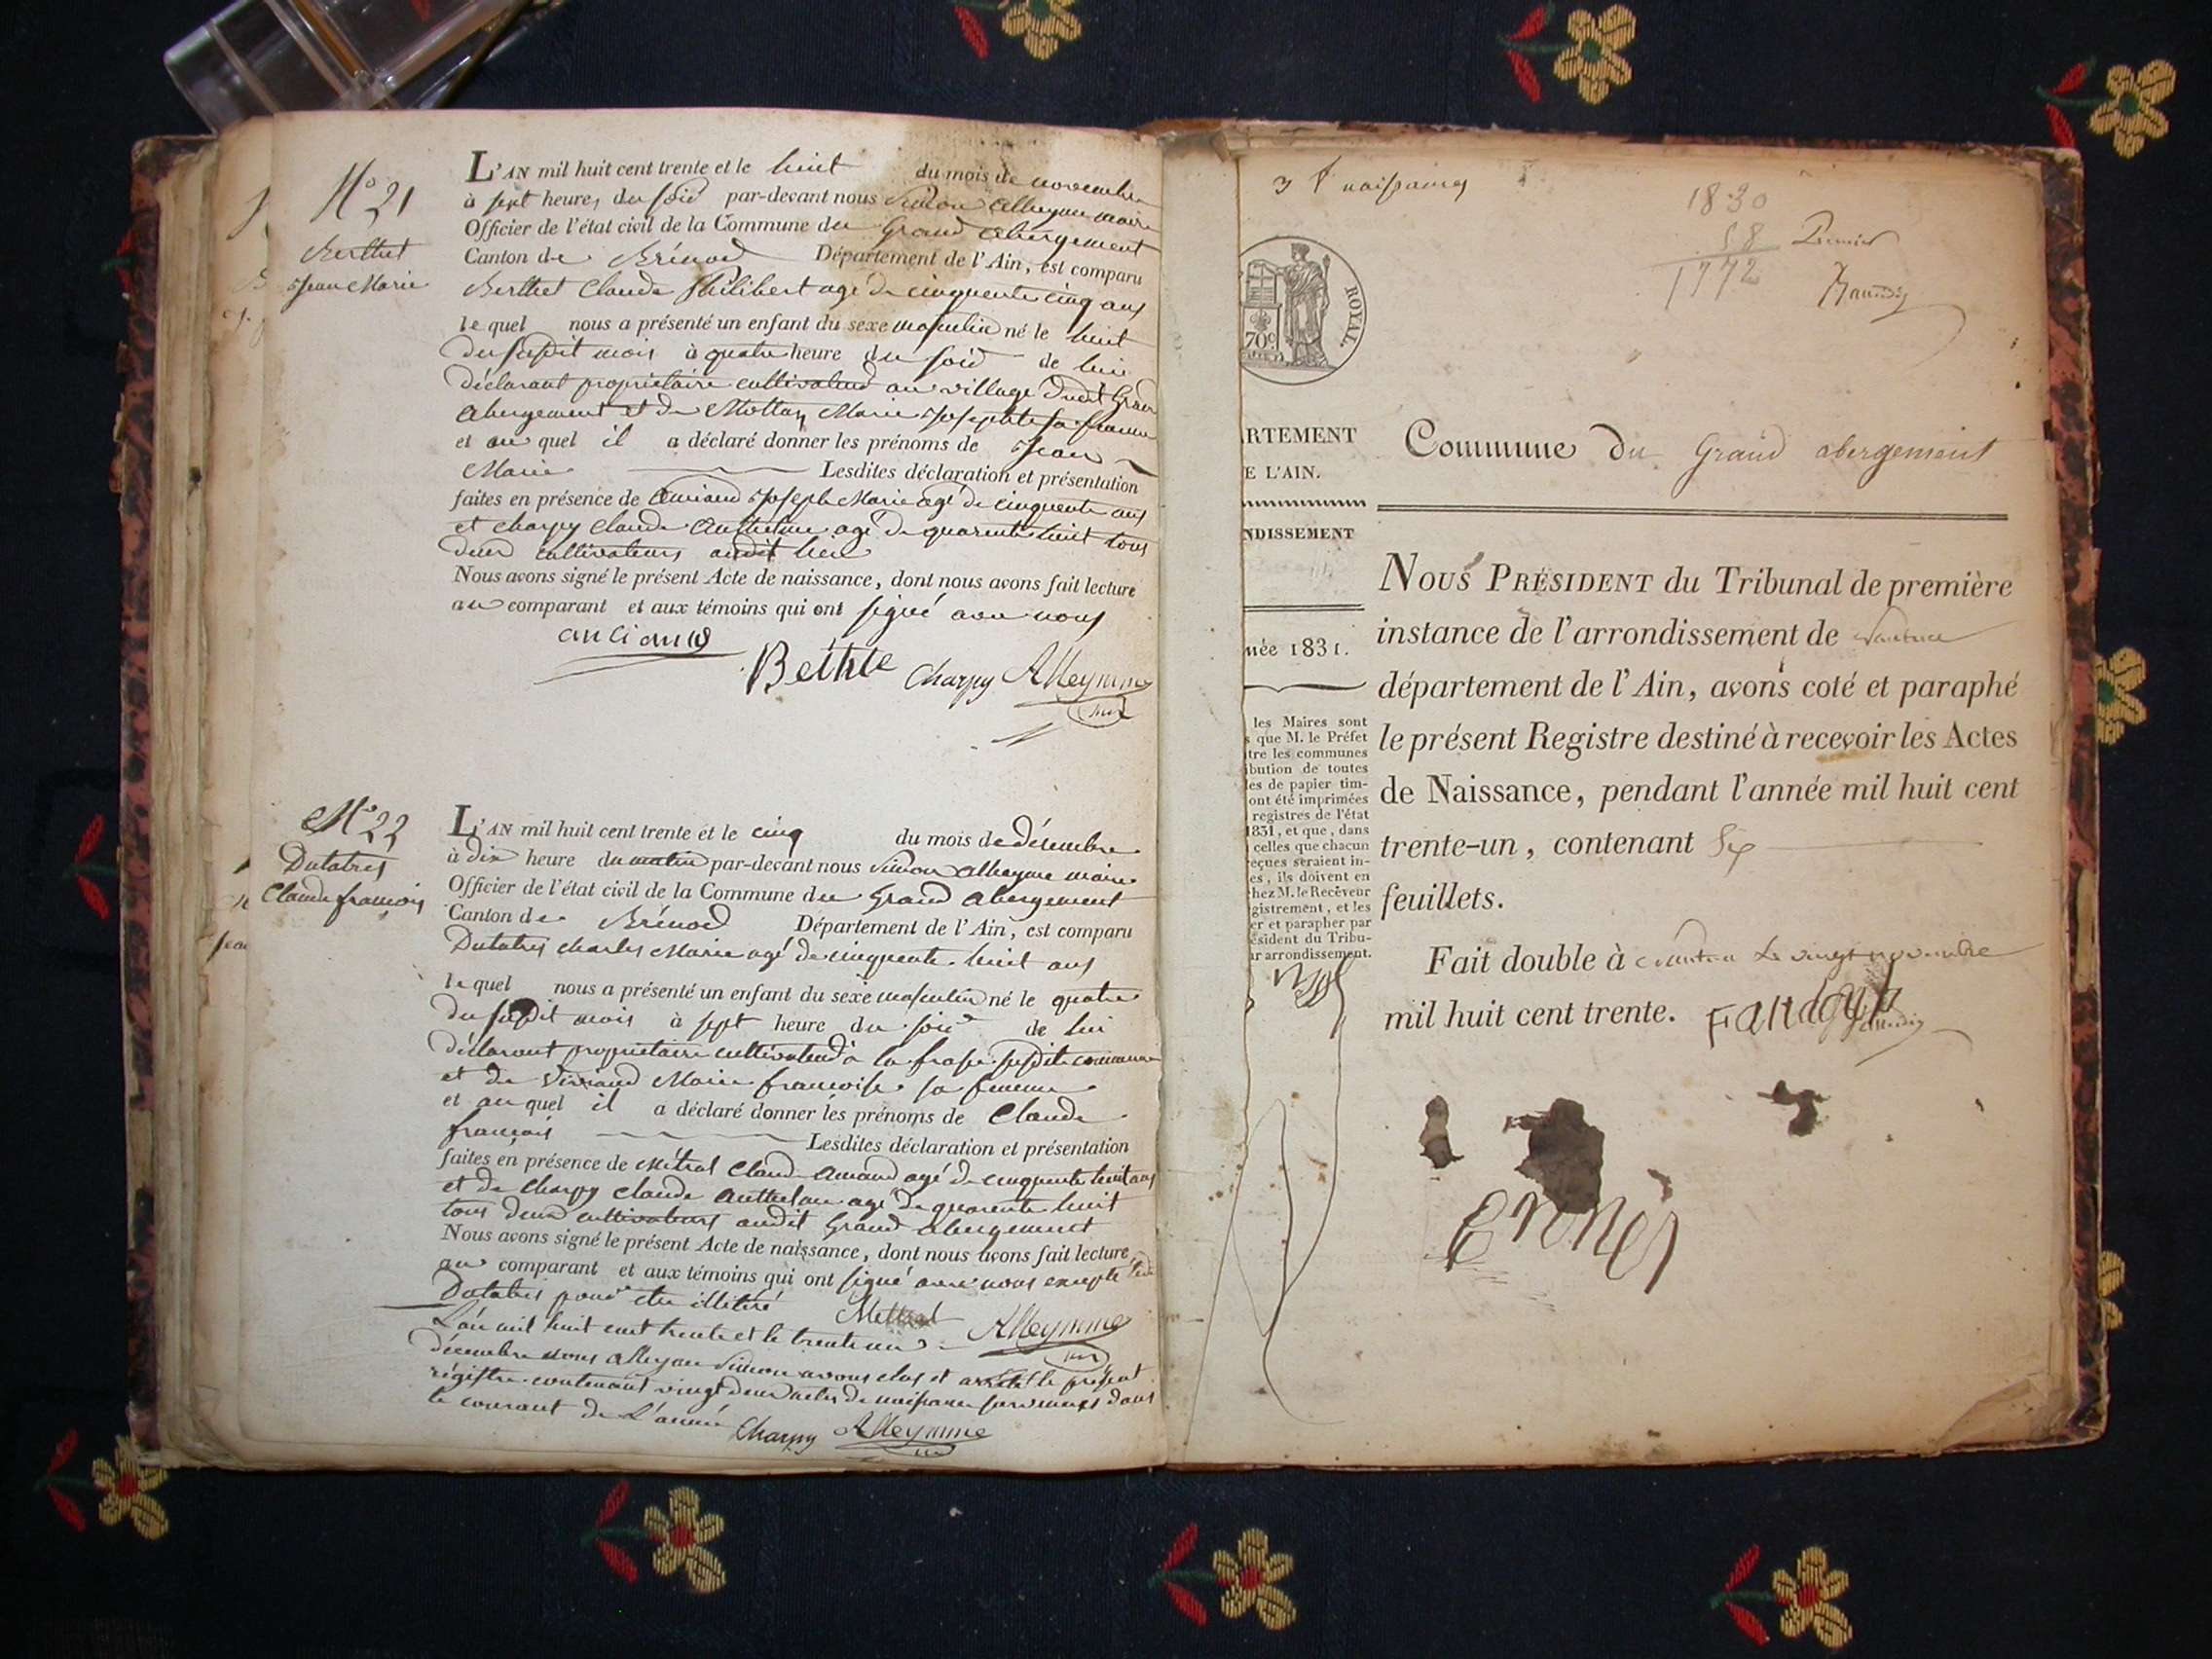 N° 21
Berthet
Jean Marie
L'AN mil huit cent trente et le huit du mois de novembre
à sept heures du soir par-devant nous Simon Alleyme maire
Officier de l'état civil de la Commune du Grand abergement
Canton de Brénod Département de l'Ain, est comparu
Berthet Claude Philibert agé de cinquente cinq ans
le quel nous a présenté un enfant du sexe masculin né le huit
du susdit mois à quatre heure du soir de lui
déclarant propriétaire cultivateur au village dudit Grand
abergement et de Mottay Marie Josephte sa femme
et au quel il a déclaré donner les prénoms de Jean
Marie Lesdites déclaration et présentation
faites en présence de Anciand Joseph Marie agé de cinquente ans
et charpy claude Anthelme agé de quarente huit tous
deux cultivateurs audit lieu
Nous avons signé le présent Acte de naissance, dont nous avons fait lecture
au comparant et aux témoins qui ont signé avec nous
anciand
Bethte Charpy Alleymme
N° 22
Dutatres
Claude françois
L'AN mil huit cent trente et le cinq du mois de décembre
à dix heure du matin par-devant nous Simon alleyme maire
Officier de l'état civil de la Commune du Grand abergement
Canton de Brénod Département de l'Ain, est comparu
Dutatres charles Marie agé de cinquente huit ans
le quel nous a présenté un enfant du sexe masculin né le quatre
du susdit mois à sept heure du soir de lui
déclarant propriétaire cultivateur à la susdite commune
et de Marie françoise sa femme
et au quel il a déclaré donner les prénoms de Claude
françois Lesdites déclaration et présentation
faites en présence de Métral Claude Amand agé de cinquente huit ans
et de charpy claude Anthelme agé de quarente huit
tous deux cultivateurs audit Grand abergement
Nous avons signé le présent Acte de naissance, dont nous avons fait lecture
au comparant et aux témoins qui ont signé avec nous excepté
Dutatres pour etre illitéré Mettral Alleymme
L'an mil huit cent trente et le trente un
décembre nous alleyme Simon avons clos et arrêté le présent
régistre contenant vingt deux actes de naissance survenues dans
le courant de L'année Charpy Alleymme
naissances
1830
58
1772
ROYAL.
70c
RTEMENT
E L'AIN.
NDISSEMENT
née 1831.
les Maires sont
s que M. le Préfet
tre les communes
ibution de toutes
les de papier tim-
ont été imprimées
registres de l'état
1831, et que, dans
celles que chacun
eçues seraient in-
es, ils doivent en
hez M. le Receveur
gistrement, et les
er et parapher par
ésident du Tribu-
ur arrondissement.
Commune du Grand abergement
NOUS PRÉSIDENT du Tribunal de première
instance de l'arrondissement de Nantua
département de l'Ain, avons coté et paraphé
le présent Registre destiné à recevoir les Actes
de Naissance, pendant l'année mil huit cent
trente-un, contenant Six
feuillets.
Fait double à Nantua le vingt novembre
mil huit cent trente.